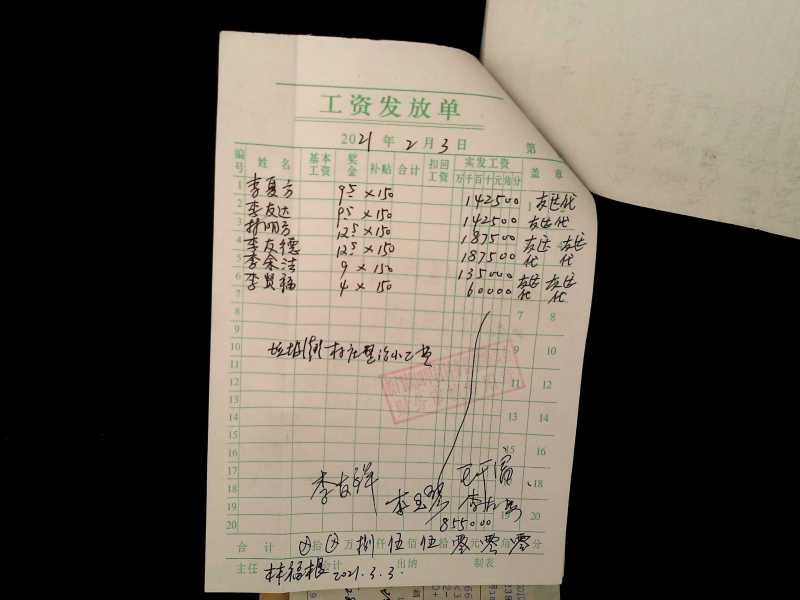 工资发放单
2021 年 2 月 3 日 第
编号 姓名 基本工资 奖金 补贴 合计 扣回工资 实发工资 万千百十元角分 盖章
1 李夏方 9.5 × 150 142500 友达代
2 李友达 9.5 × 150 142500 友达代
3 林明方 12.5 × 150 187500 友达代
4 李友德 12.5 × 150 187500 友达代
5 李余法 9 × 150 135000 友达代
6 李贤福 4 × 150 60000 友达代
7 7 8
8
9 9 10
10 村庄整治小工费
11 11 12
12
13 13 14
14
15 15 16
16
17 18
18 李友祥
19 19 20
20 855000
合计 ⊗拾⊗万捌仟伍佰伍拾零元零角零分
主任 林福根 2021.3.3. 会计 出纳 制表